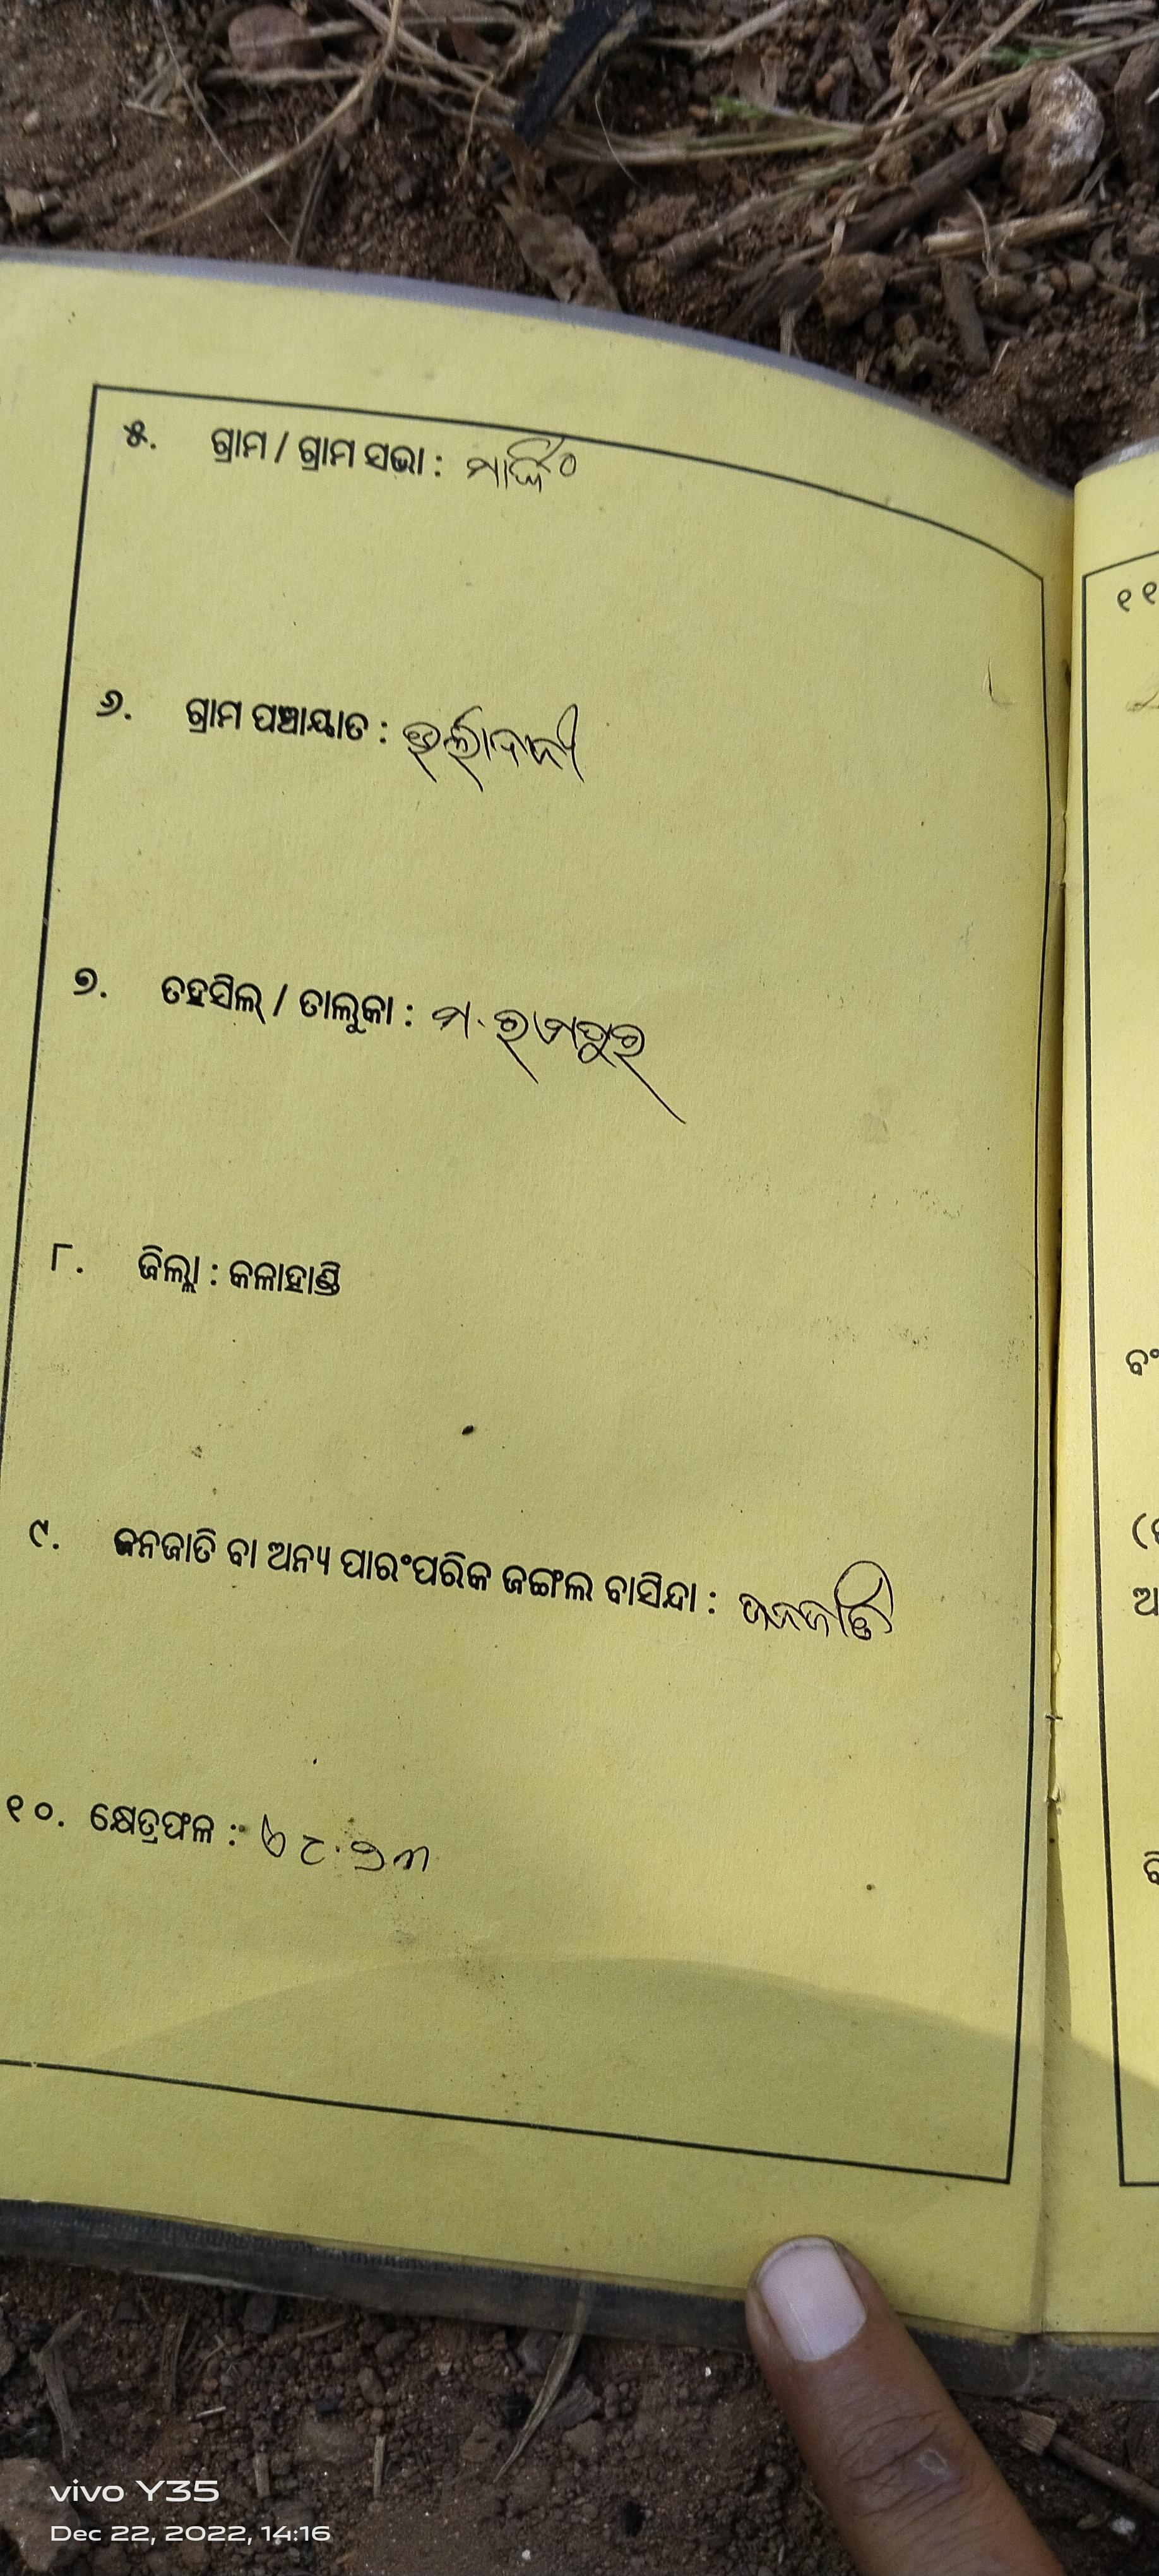 ୫. ଗ୍ରାମ / ଗ୍ରାମ ସଭା :
୬. ଗ୍ରାମ ପଞ୍ଚାୟାତ :
୭. ତହସିଲ୍ / ତାଲୁକା : ମ. ରାମପୁର
୮. ଜିଲ୍ଲା : କଳାହାଣ୍ଡି
୯. ଜନଜାତି ବା ଅନ୍ୟ ପାରଂପରିକ ଜଙ୍ଗଲ ବାସିନ୍ଦା : ଜନଜାତି
୧୦. କ୍ଷେତ୍ରଫଳ :
୧୧
vivo Y35
Dec 22, 2022, 14:16